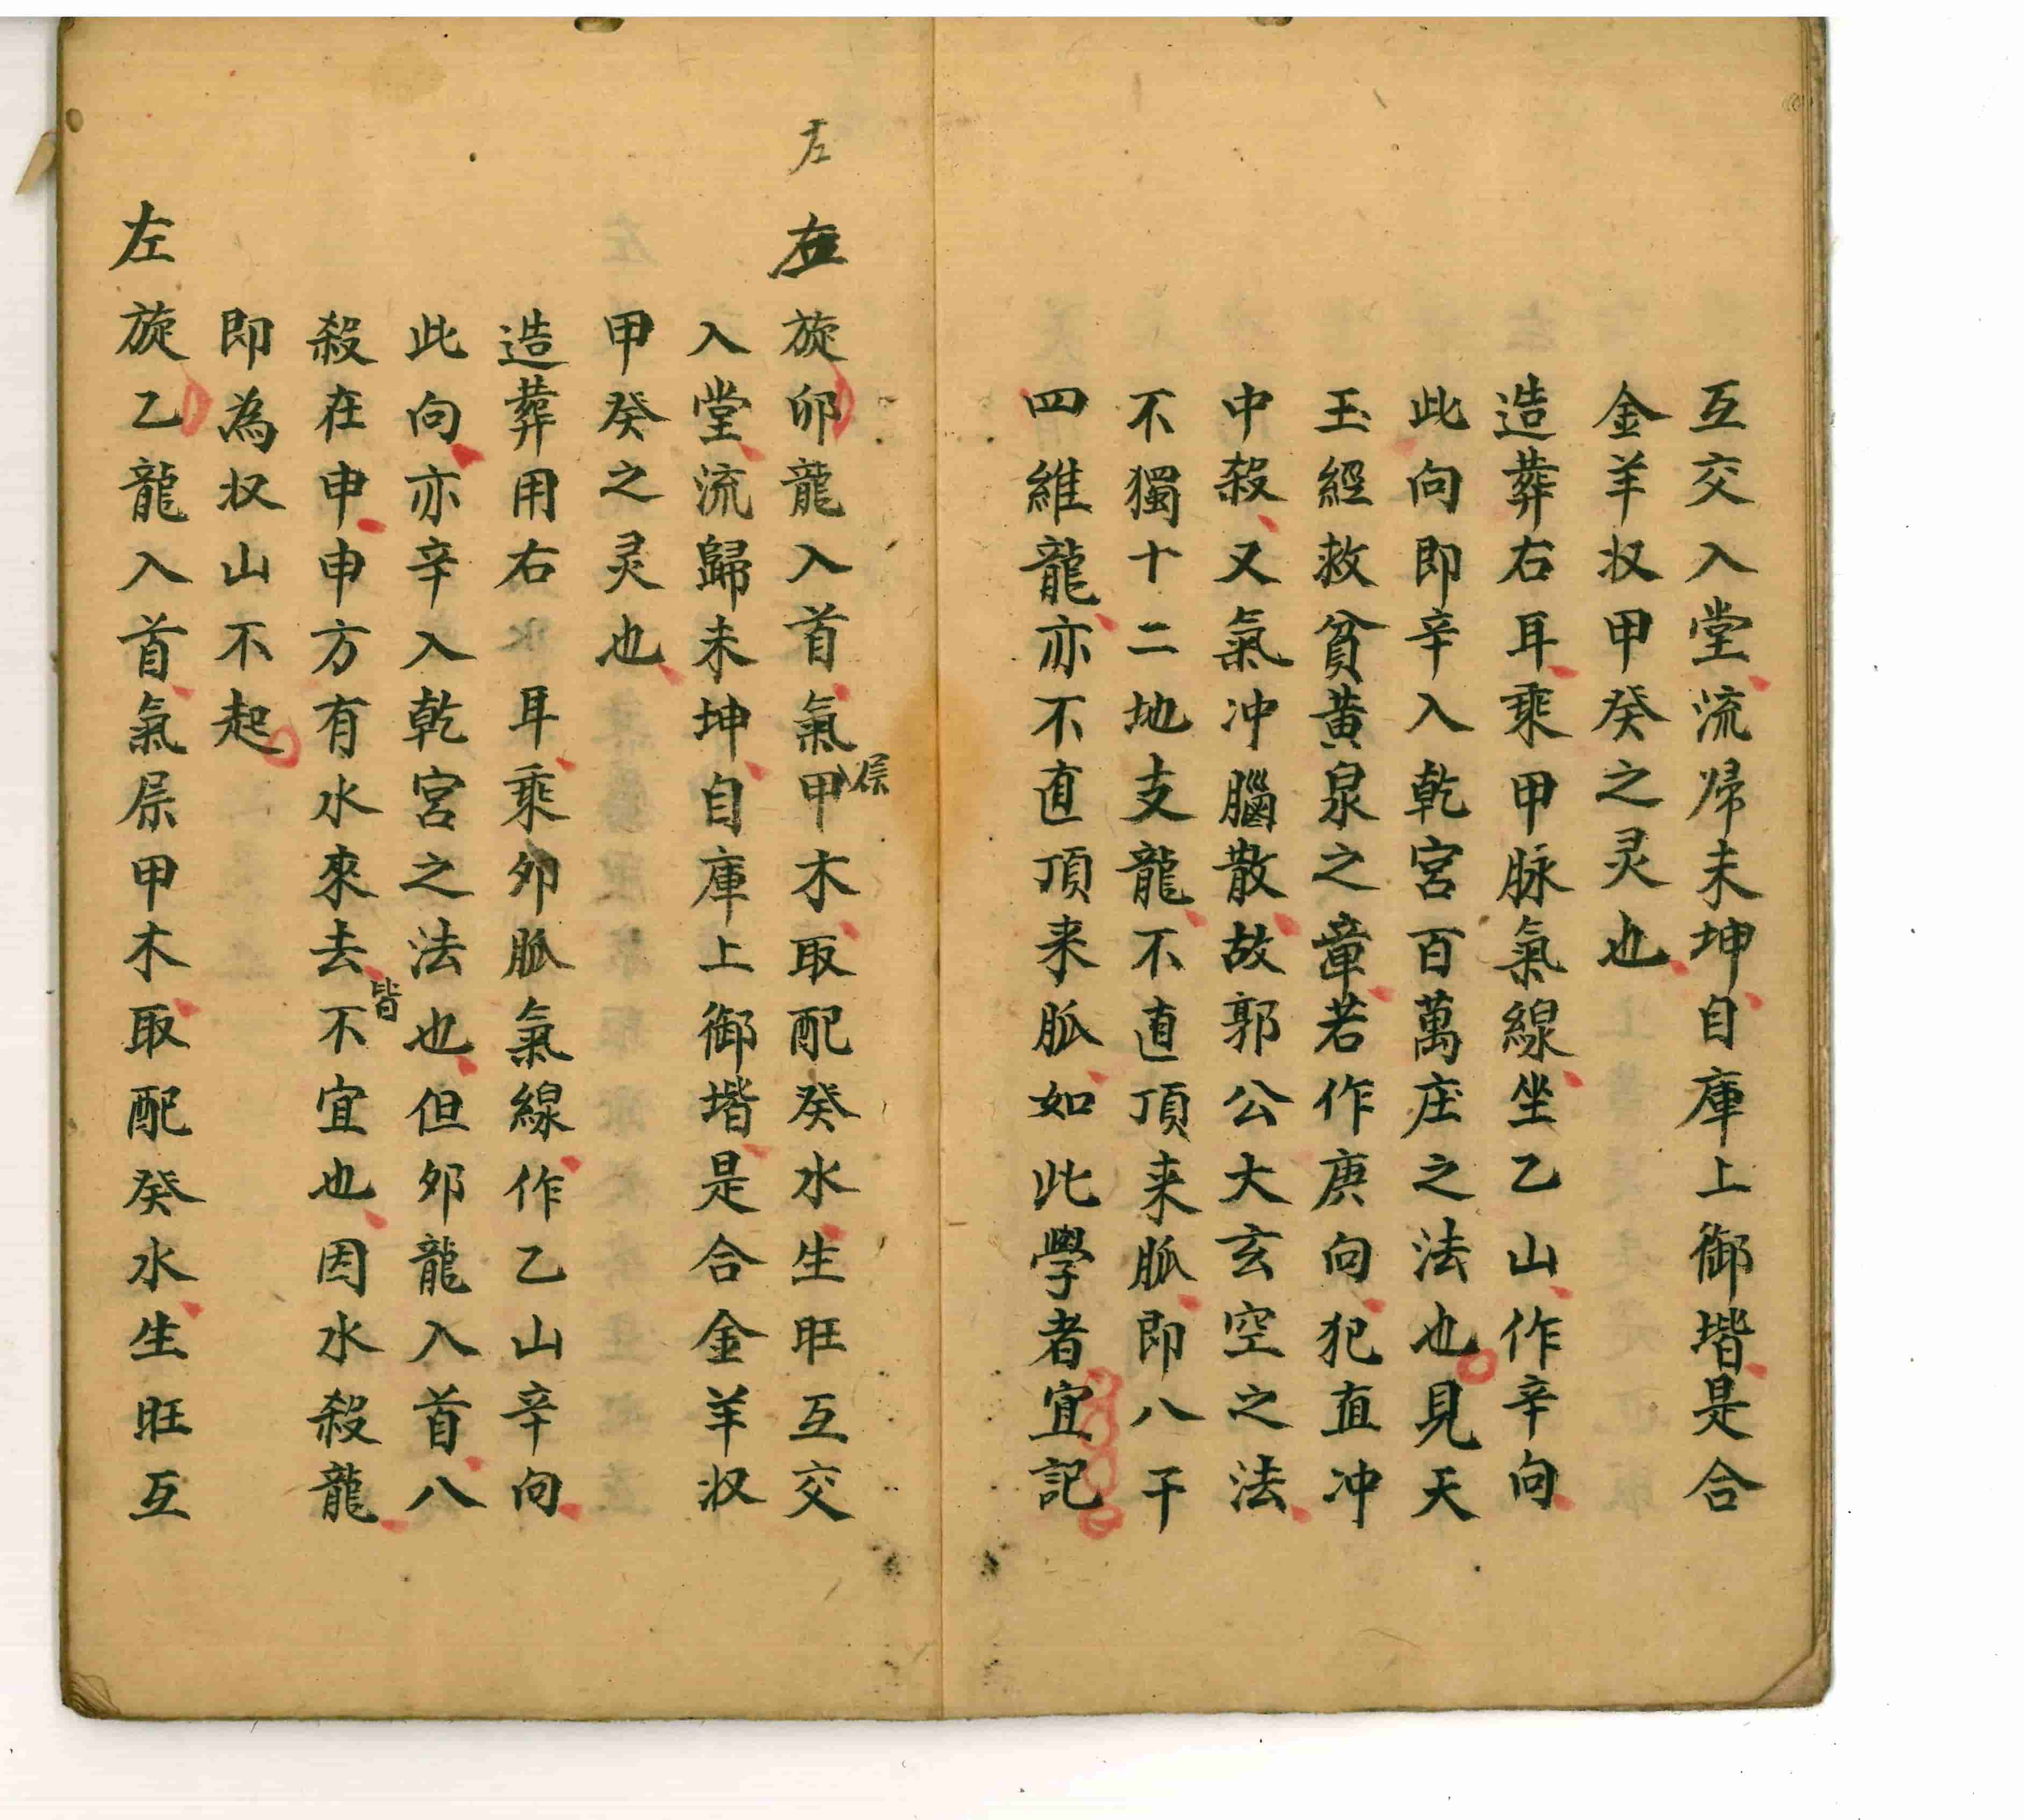 互交入堂流帰未坤自庫上御堦是合
金羊収甲癸之灵也
造葬右耳乘甲脉氣線坐乙山作辛向
此向即辛入乾宮百萬庄之法也見天
玉經救貧黄泉之章若作庚向犯直冲
中殺又氣冲腦散故郭公大玄空之法
不獨十二地支龍不直頂来脈即八干
四維龍亦不直頂来脈如此學者宜記
左
旋卯龍入首氣甲木取配癸水生旺互交
屬
入堂流歸未坤自庫上御堦是合金羊収
甲癸之灵也
造葬用右耳乘夘脈氣線作乙山辛向
此向亦辛入乾宮之法也但夘龍入首八
殺在申申方有水來去不宜也因水殺龍
皆
即為収山不起
左旋乙龍入首氣屬甲木取配癸水生旺互